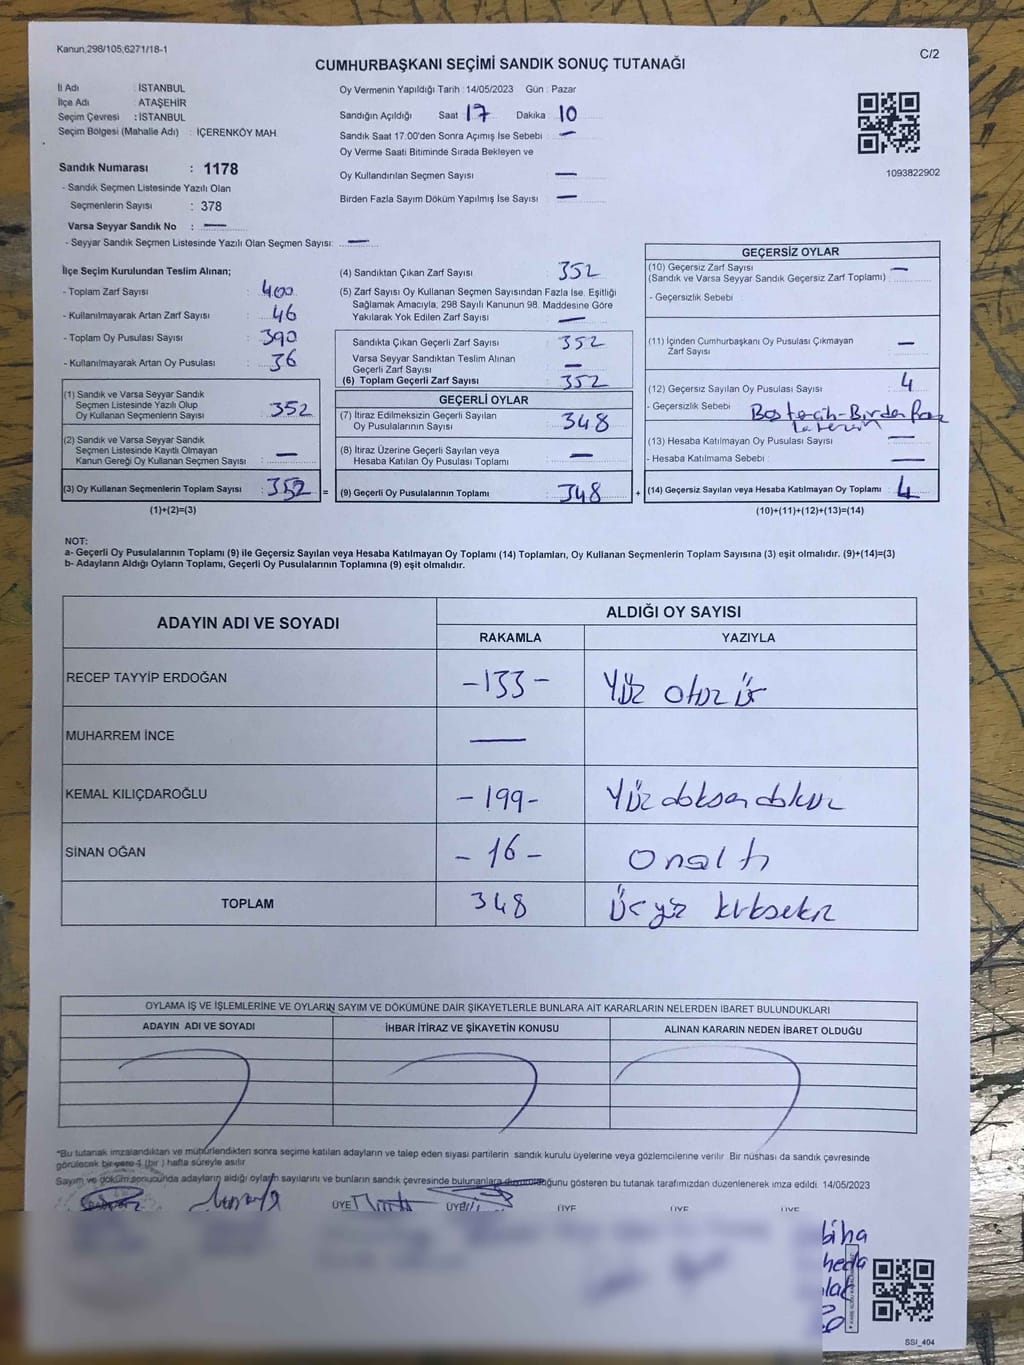 Kanun,298/105,6271/18-1
C/2
CUMHURBAŞKANI SEÇİMİ SANDIK SONUÇ TUTANAĞI
İl Adı : İSTANBUL
İlçe Adı : ATAŞEHİR
Seçim Çevresi : İSTANBUL
Seçim Bölgesi (Mahalle Adı) : İÇERENKÖY MAH.
Sandık Numarası : 1178
- Sandık Seçmen Listesinde Yazılı Olan
Seçmenlerin Sayısı : 378
Varsa Seyyar Sandık No : —
- Seyyar Sandık Seçmen Listesinde Yazılı Olan Seçmen Sayısı: —
Oy Vermenin Yapıldığı Tarih : 14/05/2023 Gün : Pazar
Sandığın Açıldığı Saat 17 Dakika 10
Sandık Saat 17.00'den Sonra Açımış İse Sebebi : —
Oy Verme Saati Bitiminde Sırada Bekleyen ve
Oy Kullandırılan Seçmen Sayısı : —
Birden Fazla Sayım Döküm Yapılmış İse Sayısı : —
1093822902
İlçe Seçim Kurulundan Teslim Alınan;
- Toplam Zarf Sayısı : 400
- Kullanılmayarak Artan Zarf Sayısı : 46
- Toplam Oy Pusulası Sayısı : 390
- Kullanılmayarak Artan Oy Pusulası : 36
(1) Sandık ve Varsa Seyyar Sandık
Seçmen Listesinde Yazılı Olup
Oy Kullanan Seçmenlerin Sayısı : 352
(2) Sandık ve Varsa Seyyar Sandık
Seçmen Listesinde Kayıtlı Olmayan
Kanun Gereği Oy Kullanan Seçmen Sayısı : —
(3) Oy Kullanan Seçmenlerin Toplam Sayısı : 352 =
(1)+(2)=(3)
(4) Sandıktan Çıkan Zarf Sayısı : 352
(5) Zarf Sayısı Oy Kullanan Seçmen Sayısından Fazla İse, Eşitliği
Sağlamak Amacıyla, 298 Sayılı Kanunun 98. Maddesine Göre
Yakılarak Yok Edilen Zarf Sayısı : —
Sandıkta Çıkan Geçerli Zarf Sayısı : 352
Varsa Seyyar Sandıktan Teslim Alınan
Geçerli Zarf Sayısı : —
(6) Toplam Geçerli Zarf Sayısı : 352
GEÇERLİ OYLAR
(7) İtiraz Edilmeksizin Geçerli Sayılan
Oy Pusulalarının Sayısı : 348
(8) İtiraz Üzerine Geçerli Sayılan veya
Hesaba Katılan Oy Pusulası Toplamı : —
(9) Geçerli Oy Pusulalarının Toplamı : 348 +
GEÇERSİZ OYLAR
(10) Geçersiz Zarf Sayısı : —
(Sandık ve Varsa Seyyar Sandık Geçersiz Zarf Toplamı)
- Geçersizlik Sebebi :
(11) İçinden Cumhurbaşkanı Oy Pusulası Çıkmayan
Zarf Sayısı : —
(12) Geçersiz Sayılan Oy Pusulası Sayısı : 4
- Geçersizlik Sebebi : Bos tercih-Birden faz
la tercih
(13) Hesaba Katılmayan Oy Pusulası Sayısı : —
- Hesaba Katılmama Sebebi : —
(14) Geçersiz Sayılan veya Hesaba Katılmayan Oy Toplamı : 4
(10)+(11)+(12)+(13)=(14)
NOT:
a- Geçerli Oy Pusulalarının Toplamı (9) ile Geçersiz Sayılan veya Hesaba Katılmayan Oy Toplamı (14) Toplamları, Oy Kullanan Seçmenlerin Toplam Sayısına (3) eşit olmalıdır. (9)+(14)=(3)
b- Adayların Aldığı Oyların Toplamı, Geçerli Oy Pusulalarının Toplamına (9) eşit olmalıdır.
ADAYIN ADI VE SOYADI
ALDIĞI OY SAYISI
RAKAMLA YAZIYLA
RECEP TAYYİP ERDOĞAN -133- Yüz otuz üç
MUHARREM İNCE —
KEMAL KILIÇDAROĞLU -199- Yüz doksan dokuz
SİNAN OĞAN -16- Onaltı
TOPLAM 348 Üç yüz kırksekiz
OYLAMA İŞ VE İŞLEMLERİNE VE OYLARIN SAYIM VE DÖKÜMÜNE DAİR ŞİKAYETLERLE BUNLARA AİT KARARLARIN NELERDEN İBARET BULUNDUKLARI
ADAYIN ADI VE SOYADI İHBAR İTİRAZ VE ŞİKAYETİN KONUSU ALINAN KARARIN NEDEN İBARET OLDUĞU
*Bu tutanak imzalandıktan ve mühürlendikten sonra seçime katılan adayların ve talep eden siyasi partilerin sandık kurulu üyelerine veya gözlemcilerine verilir. Bir nüshası da sandık çevresinde
görülecek bir yere 1 (bir ) hafta süreyle asılır
Sayım ve döküm sonucunda adayların aldığı oyların sayılarını ve bunların sandık çevresinde bulunanlara duyurulduğunu gösteren bu tutanak tarafımızdan düzenlenerek imza edildi. 14/05/2023
ÜYE ÜYE ÜYE ÜYE ÜYE
biha
heda
SSI_404